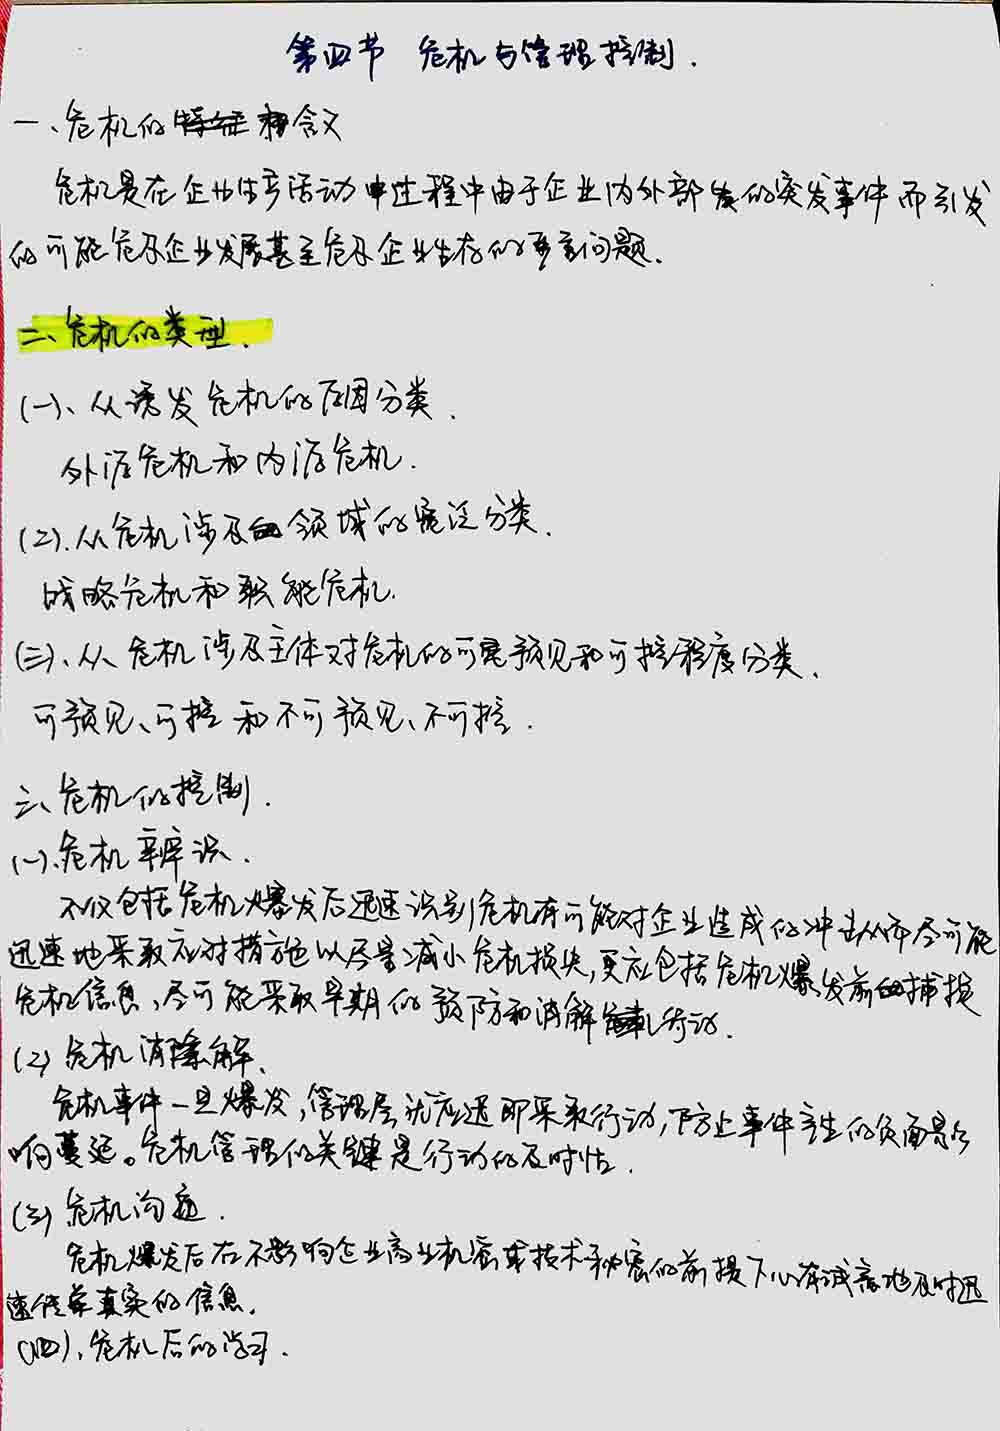 第四节 危机与管理控制.
一、危机的含义
危机是在企业生产活动过程中由于企业内外部的突发事件而引发
的可能危及企业发展甚至危及企业生存的严重问题.
二、危机的类型.
(一)、从诱发危机的原因分类.
外源危机和内源危机.
(2).从危机涉及领域的宽泛分类.
战略危机和职能危机.
(三)、从危机涉及主体对危机的可预见和可控程度分类.
可预见、可控和不可预见、不可控.
三、危机的控制.
(一).危机辨识.
不仅包括危机爆发后迅速识别危机有可能对企业造成的冲击从而尽可能
迅速地采取应对措施以尽量减小危机损失,更应包括危机爆发前的捕捉
危机信息,尽可能采取早期的预防和消解行动.
(2)危机消解.
危机事件一旦爆发,管理层就应迅即采取行动,防止事件产生的负面影
响蔓延。危机管理的关键是行动的及时性.
(3)危机沟通.
危机爆发后在不影响企业商业机密或技术秘密的前提下心存诚意地及时迅
速传染真实的信息.
(四)、危机后的学习.